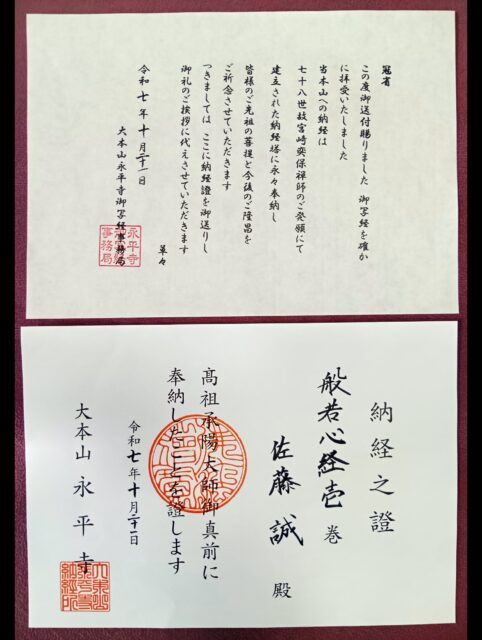 冠省
この度御送付賜りました 御写経を確か
に拝受いたしました
当本山への納経は
七十八世故宮崎奕保禅師のご発願にて
建立された納経塔に永々奉納し
皆様のご先祖の菩提と今後のご隆昌を
ご祈念させていただきます
つきましては ここに納経證を御送りし
御礼のご挨拶に代えさせていただきます
草々
令和七年十月二十一日
大本山永平寺御写経事務局
納経之證
般若心経壱巻
佐藤誠殿
高祖承陽大師御真前に
奉納したことを證します
令和七年十月二十一日
大本山永平寺